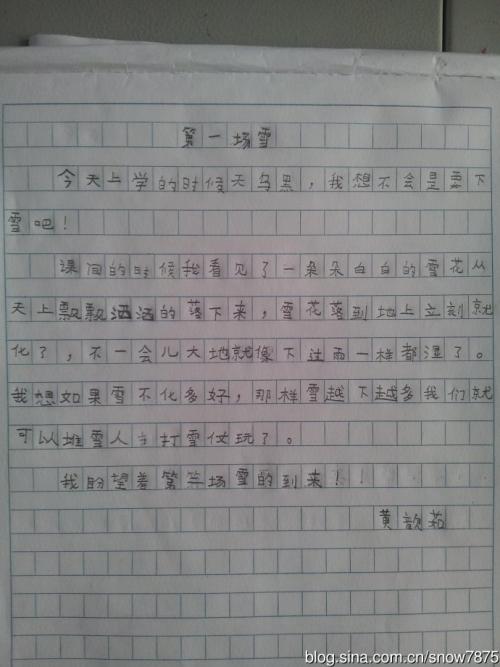 第一场雪
今天上学的时候天乌黑，我想不会是要下
雪吧！
课间的时候我看见了一朵朵白白的雪花从
天上飘飘洒洒的落下来，雪花落到地上立刻就
化了，不一会儿大地就像下过雨一样都湿了。
我想如果雪不化多好，那样雪越下越多我们就
可以堆雪人打雪仗玩了。
我盼望着第场雪的到来！
黄韵茹
blog.sina.com.cn/snow7875